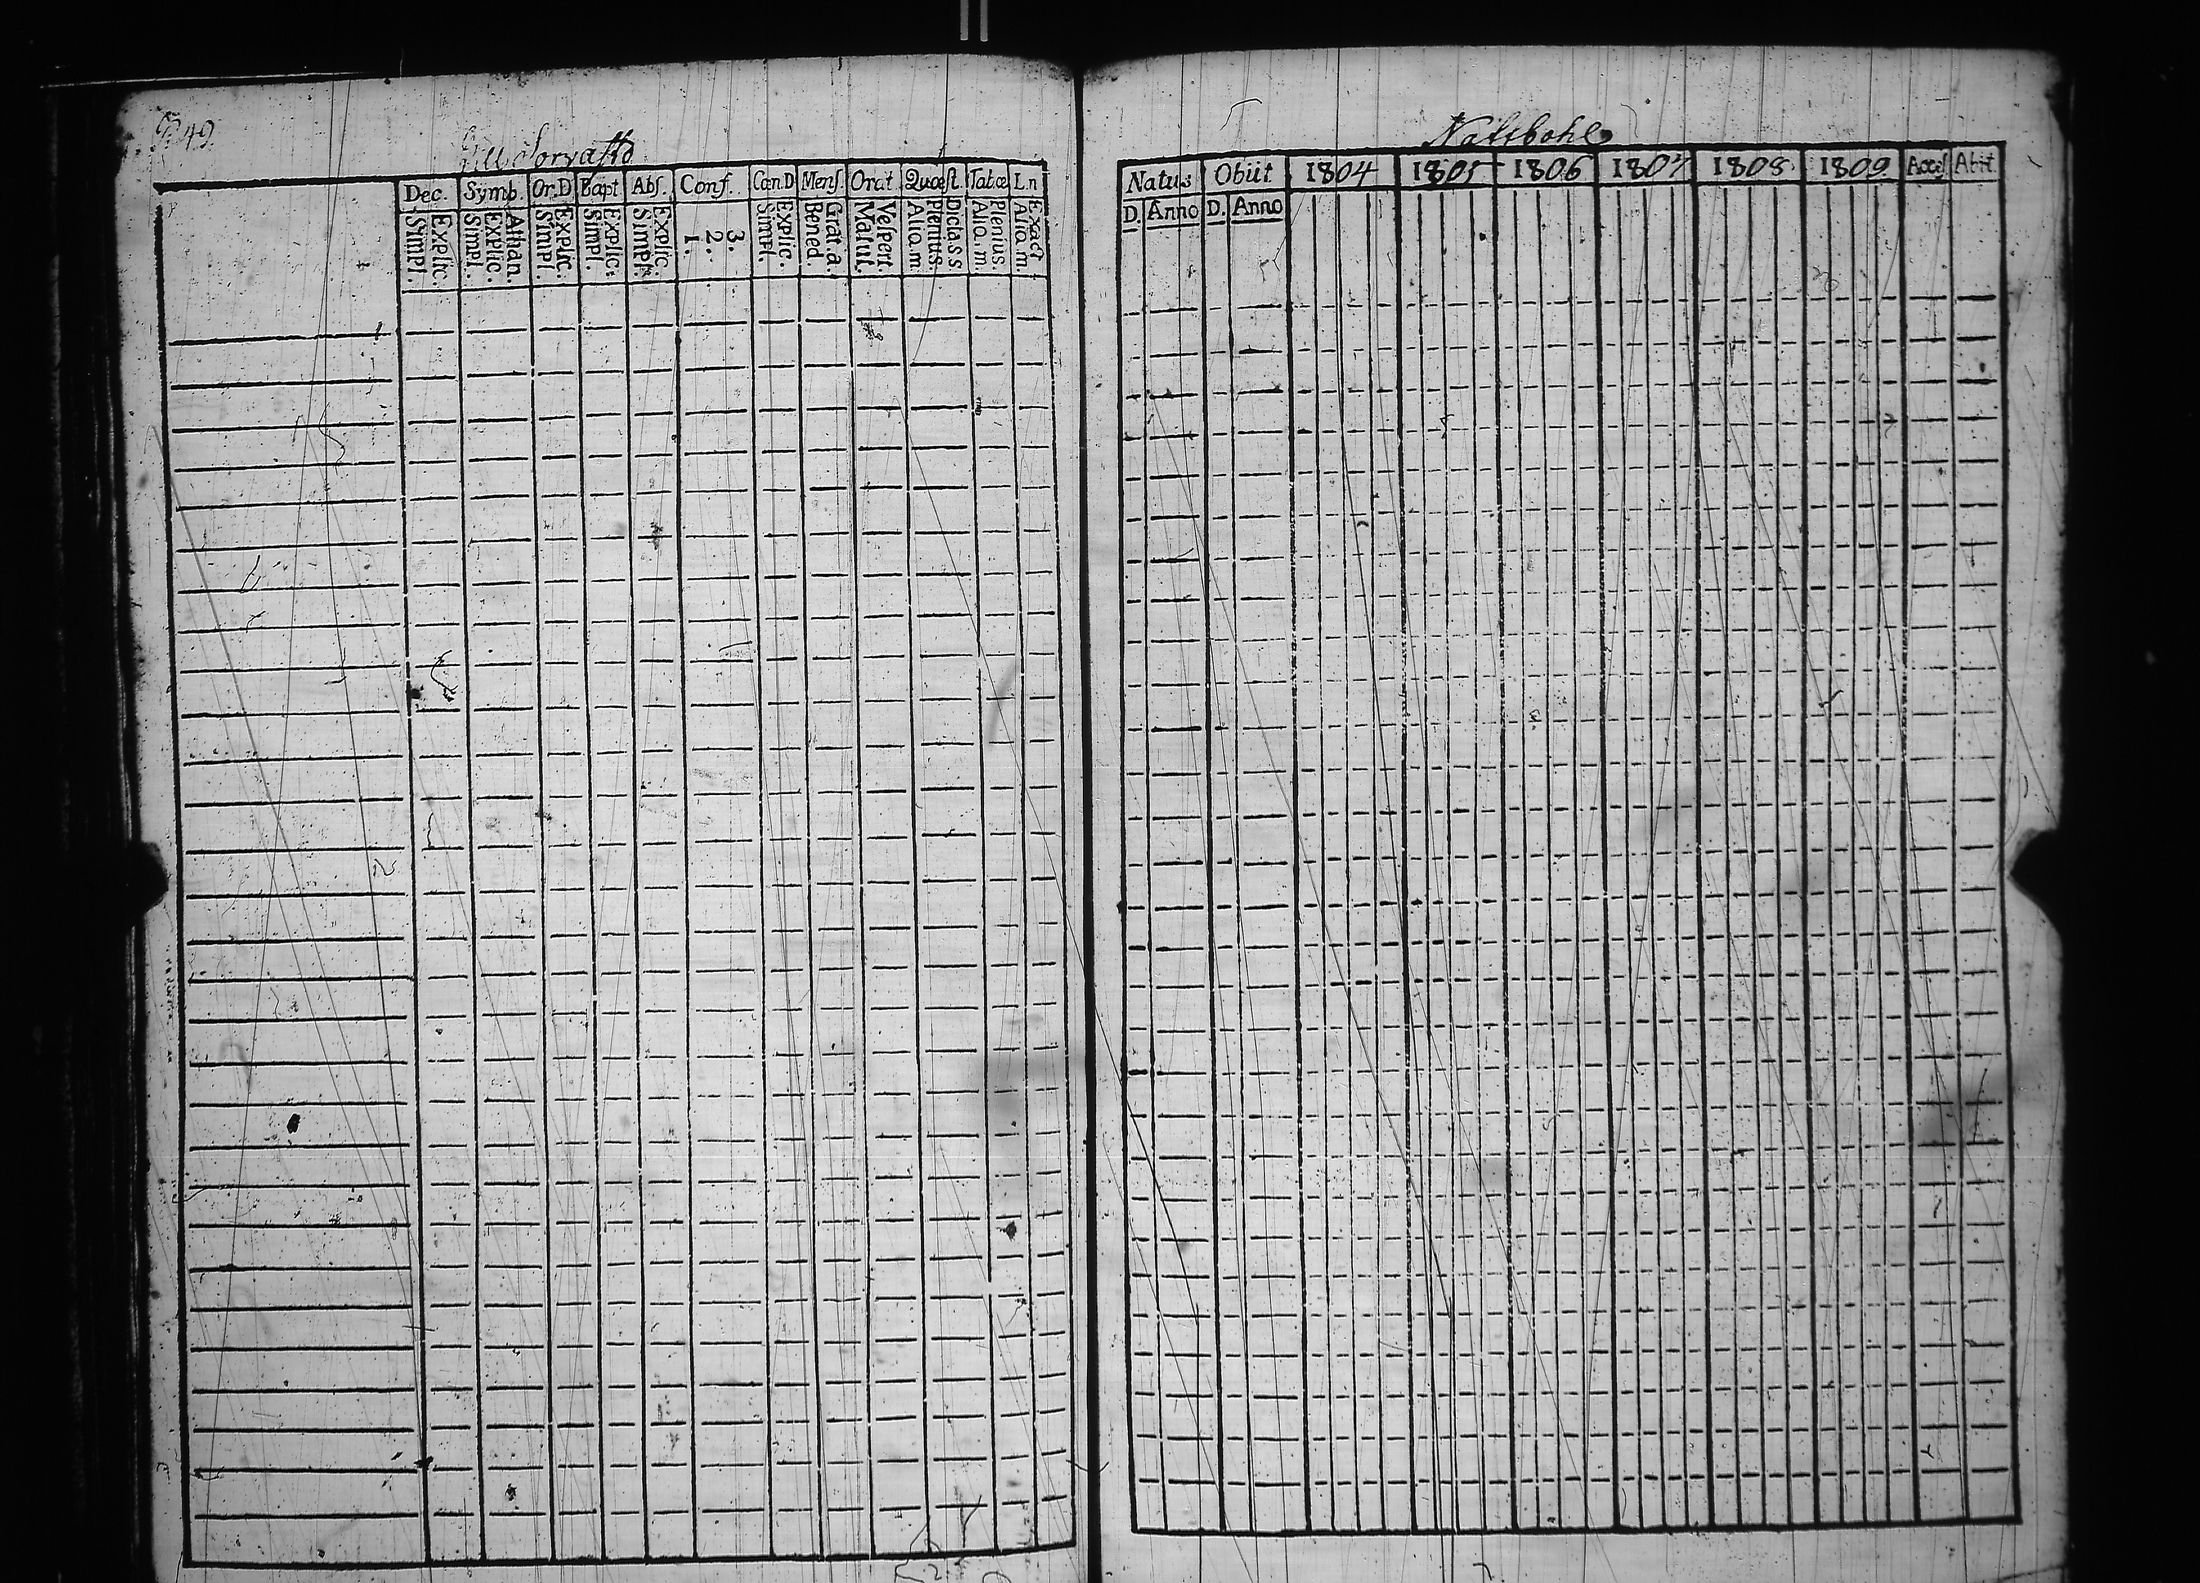 49.
Dec. Symb. Or.D Bapt Abs. Conf. Cœn.D Mens. Orat. Quæst. Tabæ L.n
Explic. Simpl. Athan. Explic. Simpl. Explic. Simpl. Explic. Simpl. Explic. Simpl. 3. 2. 1. Explic. Simpl. Grat. a. Bened. Vespert. Matut. Dicta s s Plenius. Aliq. m. Plenius. Aliq. m. Exact Aliq. m.
Nattbohle
Natus Obiit 1804 1805 1806 1807 1808 1809 Acceſ Abit
D. Anno D. Anno